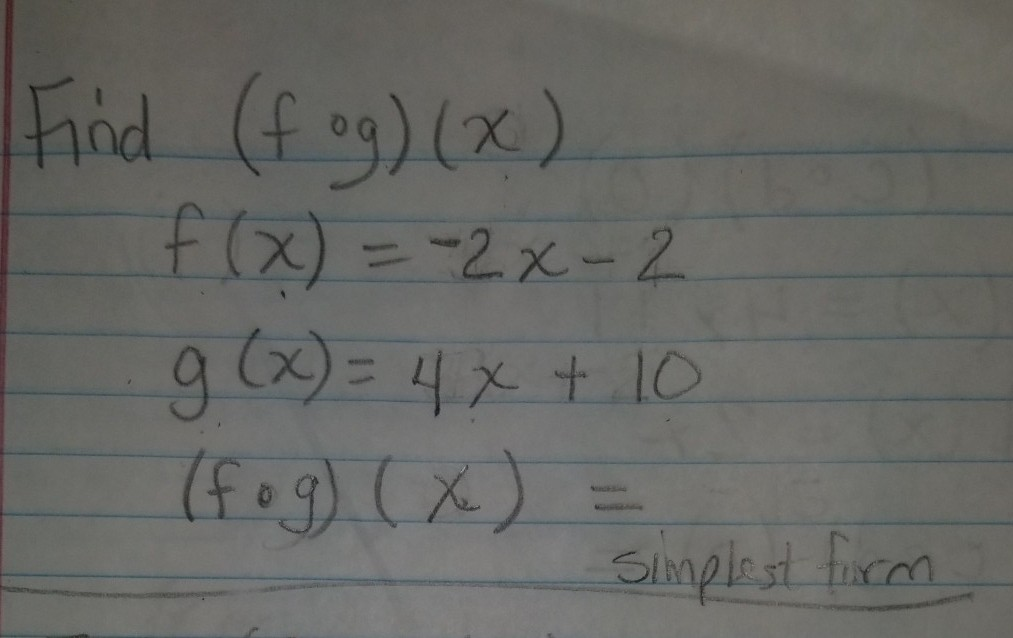 Find (f∘g)(x)
f(x) = -2x - 2
g(x) = 4x + 10
(f∘g)(x) =
simplest form